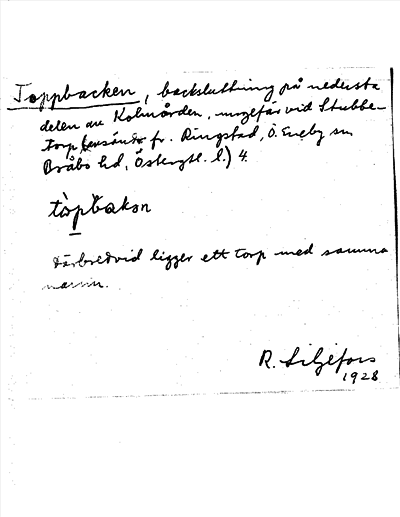 Toppbacken, backsluttning på nedersta
delen av Kolmården, ungefär vid Stubbe-
torp fr. Ringstad, Ö. Eneby sn
Bråbo hd, Östergtl. l.) 4.
tòpbakən
därbredvid ligger ett torp med samma
namn.
R. Liljefors
1928